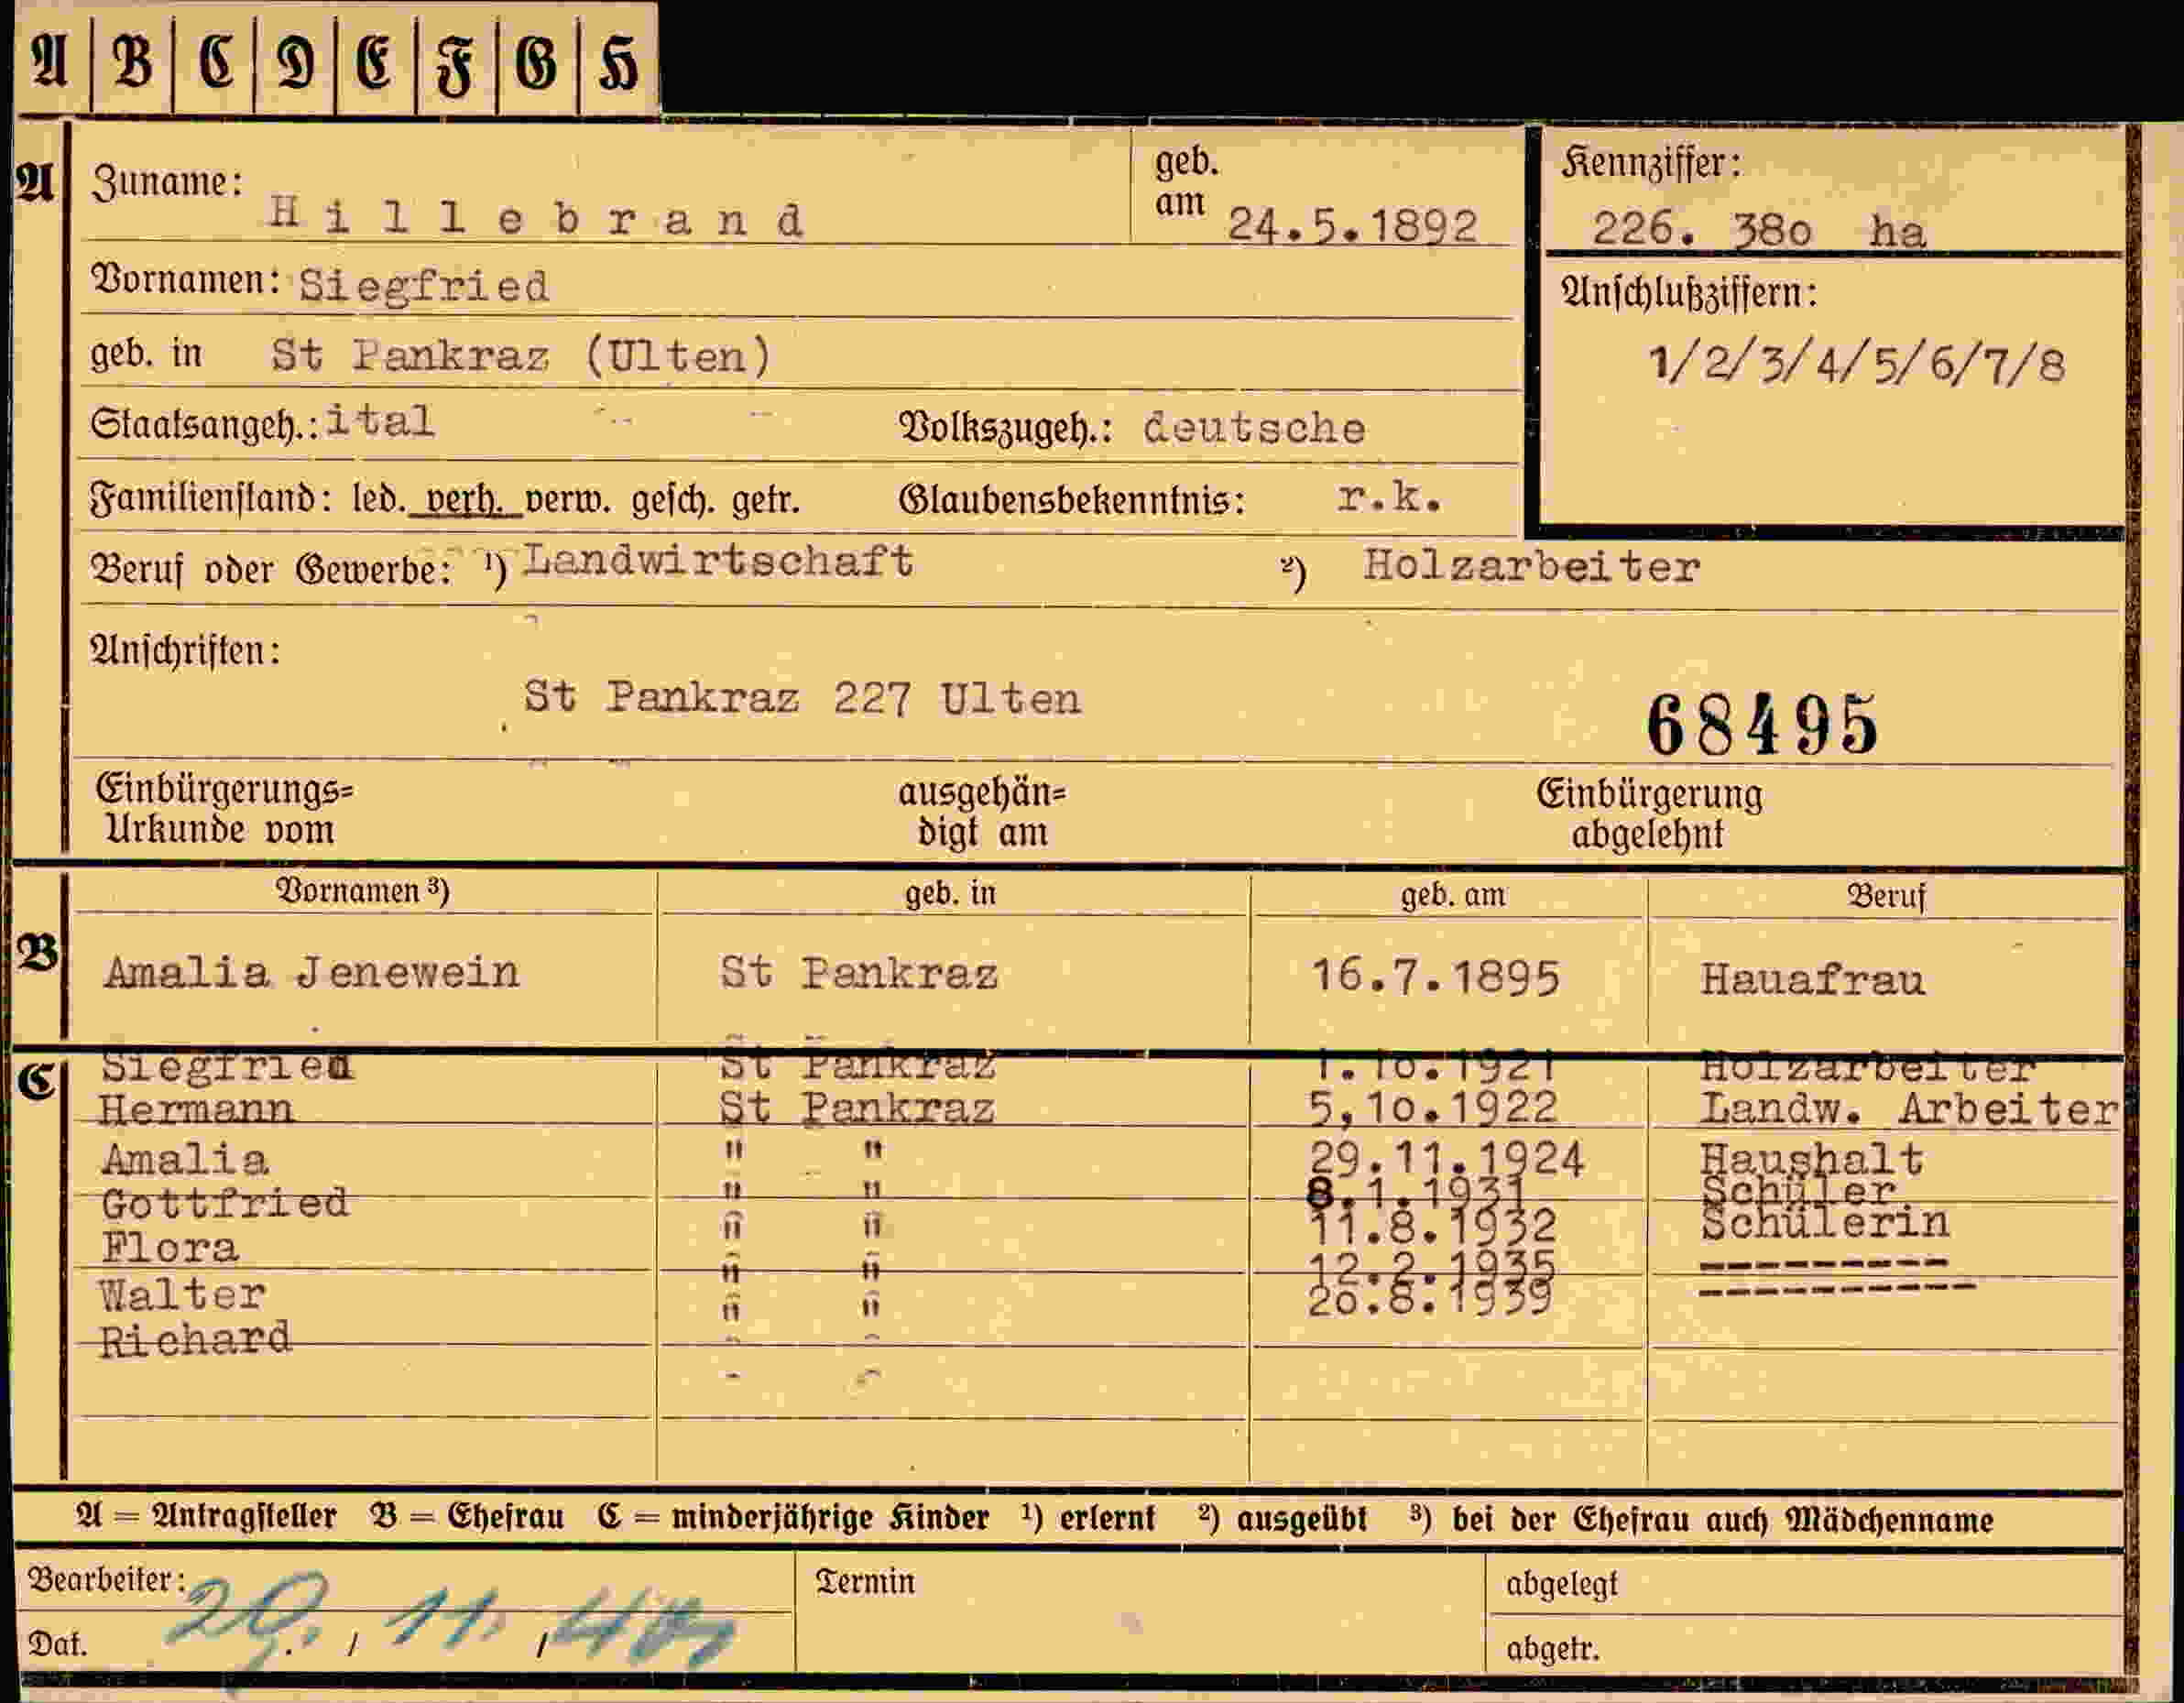 A B C D E F G H
A Zuname: Hillebrand geb. am 24.5.1892 Kennziffer: 226. 380 ha
Vornamen: Siegfried Anschlußziffern:
geb. in St Pankraz (Ulten) 1/2/3/4/5/6/7/8
Staatsangeh.: ital Volkszugeh.: deutsche
Familienstand: led. verh. verw. gesch. getr. Glaubensbekenntnis: r.k.
Beruf oder Gewerbe: ¹) Landwirtschaft ²) Holzarbeiter
Anschriften:
St Pankraz 227 Ulten 68495
Einbürgerungs= ausgehän= Einbürgerung
Urkunde vom digt am abgelehnt
Vornamen ³) geb. in geb. am Beruf
B Amalia Jenewein St Pankraz 16.7.1895 Hauafrau
C Siegfried St Pankraz 1.10.1921 Holzarbeiter
Hermann St Pankraz 5,10.1922 Landw. Arbeiter
Amalia " " 29.11.1924 Haushalt
Gottfried " " 8.1.1931 Schüler
Flora " " 11.8.1932 Schülerin
Walter " " 12.2.1935 ---------
Richard " " 20.8.1939 ----------
A = Antragsteller B = Ehefrau C = minderjährige Kinder ¹) erlernt ²) ausgeübt ³) bei der Ehefrau auch Mädchenname
Bearbeiter: Termin abgelegt
Dat. 29. 11. 40 abgetr.